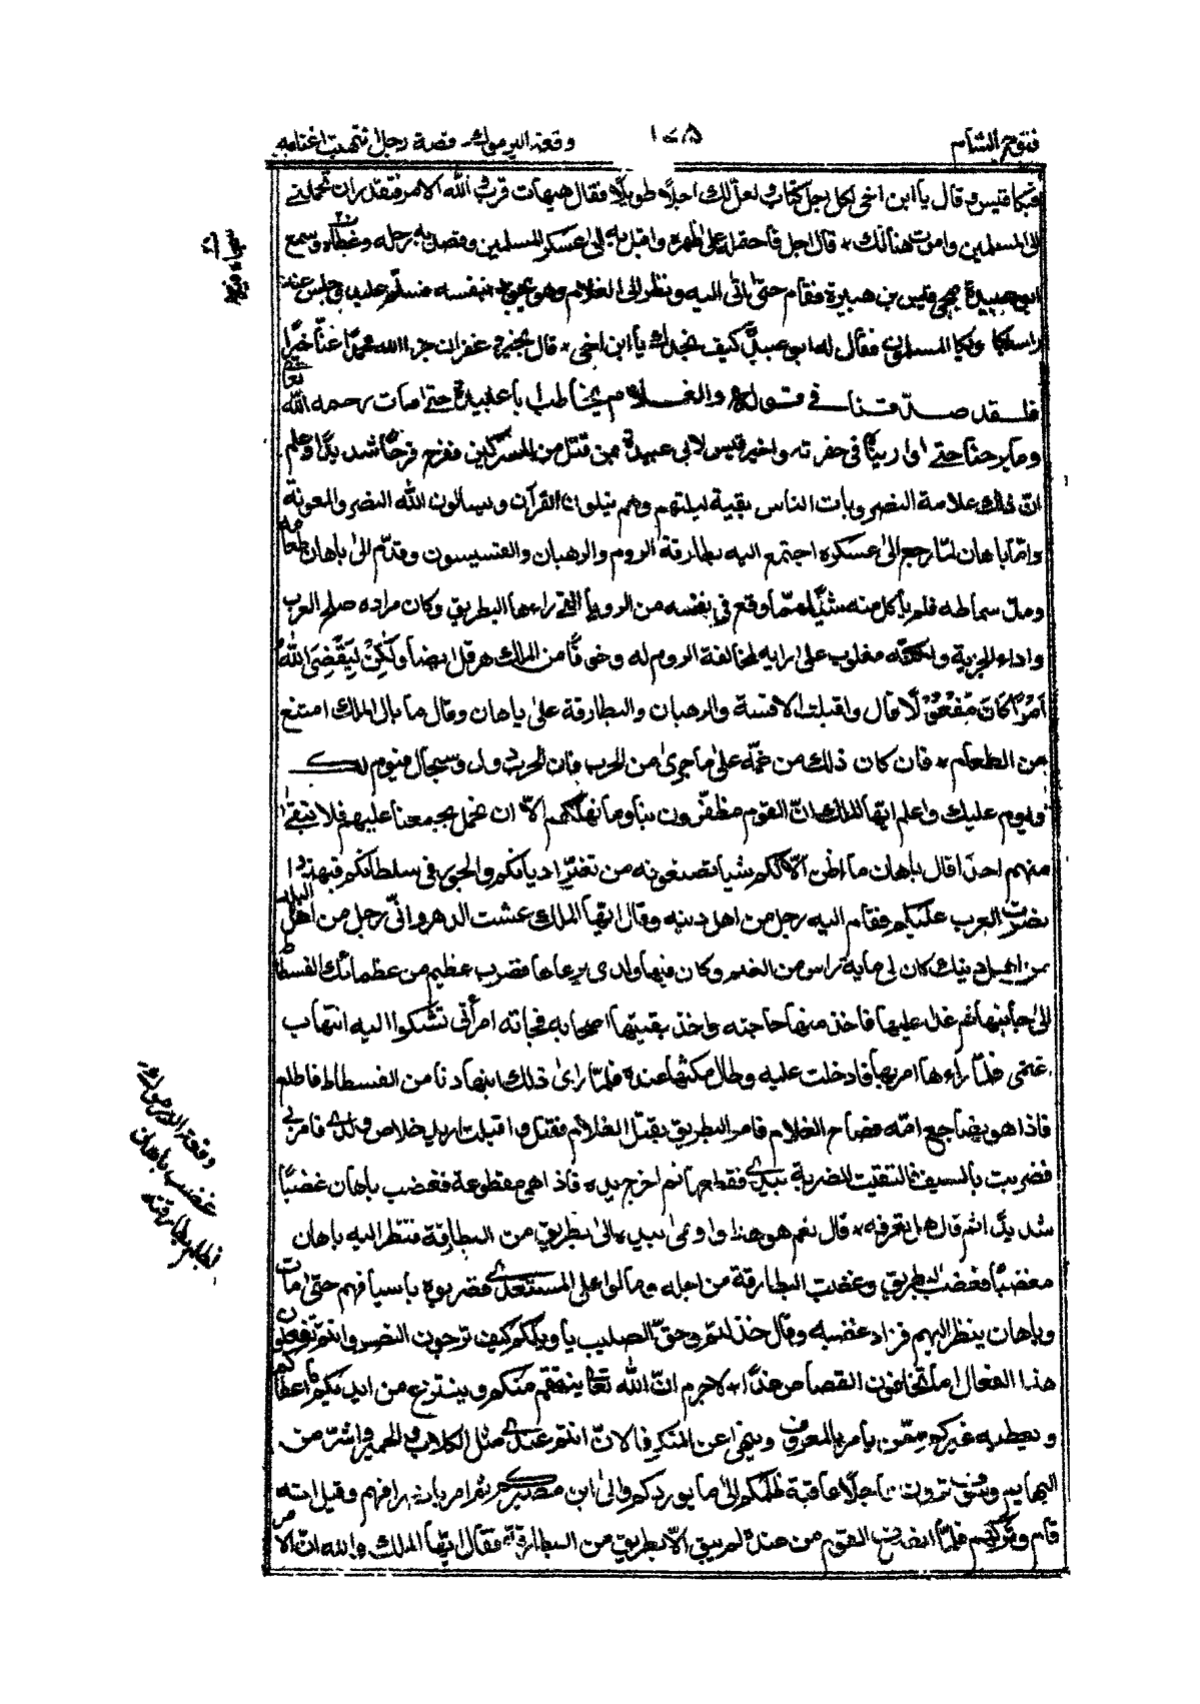 فتوح الشام
١٧٥
وقعة اليرموك قصة رجل انتهبت اغنامه
فبكا قيس وقال يا ابن اخى لكل رجل كتاب ولعل لك اجلا طويلا فقال هيهات قرب الله الامر فتقدر ان تحملنے
الى المسلمين واموت هنالك * قال اجل فاحتمله على ظهره واقبل به الى عسكر المسلمين وقصد به رحله وغطاه وسمع
ابو عبيدة بمجى قيس بن هبيرة فقام حتى اتى اليه ونظر الى الغلام وهو يجود بنفسه فسلم عليه وجلس عند
راسه وبكا وبكا المسلمون فقال له ابو عبيدة كيف تجدك يا ابن اخى * قال بخير وغفران جزا الله محمدا عنا خيرا
فلقد صدقنا في قوله والغلام يخاطب با عبيدة حتے مات رحمه الله تعالى
وما برحنا حتے اوارينا فى حفرته واخبر قيس لابى عبيدة بمن قتل من المشركين ففرح فرحا شديدا وعلم
ان ذلك علامة النصر وبات الناس بقية ليلتهم وهم يتلون القرآن ويسالون الله النصر والمعونة
واما باهان لما رجع الى عسكره اجتمع اليه بطارقة الروم والرهبان والقسيسون وقدم الى باهان طعامه
ومد سماطه فلم ياكل منه شيئا مما وقع فى نفسه من الرويا التے راءها البطريق وكان مراده صلح العرب
واداء الجزية ولكنه مغلوب على رايه لمخالفة الروم له وخوفا من الملك هرقل ايضا ولكن ليقضى الله
امرا كان مفعولا قال واقبلت الاقسة والرهبان والبطارقة على باهان وقال ما بال الملك امتنع
من الطعام * فان كان ذلك من غمه على ما جرى من الحرب فان الحرب دول وسجال فيوم لك
ويوم عليك واعلم ايها الملك ان القوم مظفرون بنا وما نهلكهم الا ان نحمل بجمعنا عليهم فلا نبقى
منهم احدا قال باهان ما اظن الا انكم شيا تصنعونه من تغير اديانكم والجور فى سلطانكم فبهذا
نصرت العرب عليكم فقام اليه رجل من اهل دينه وقال ايها الملك عشت الدهر وانى رجل من اهل البلد
من اهل دينك كان لى ماية راس من الغنم وكان فيها ولدى يرعاها فضرب عظيم من عظمائك الفسطاط
الى جانبها ثم غدا عليها فاخذ منها حاجته واخذ بقيتها اصحابه فجاته امرأتى تشكوا اليه انتهاب
غنمى فلما راءها امر بها فادخلت عليه وطال مكثها عنده فلما راى ذلك ابنها دنا من الفسطاط فاطلع
فاذا هو يضاجع امه فصاح الغلام فامر البطريق بقتل الغلام فقتل واقبلت اريد خلاص ولدى فامر بى
فضربت بالسيف فالتقيت الضربة بيدى فقطعها ثم اخرج يده فاذا هى مقطوعة فغضب باهان غضبا
شديدا ثم قال هل تعرفه * قال نعم هو هذا واومى بيده الى بطريق من البطارقة فنظر اليه باهان
مغضبا فغضب البطريق وغضبت البطارقة من اجله ومالوا على المستعدى فضربوه باسيافهم حتى مات
وباهان ينظر اليهم فزاد غضبه وقال خذلتم وحق الصليب يا ويلكم كيف ترجون النصر وانتم تفعلون
هذا الفعال اما تخافون القصاص غدا * لا جرم ان الله تعالى ينتقم منكم وينتزع من ايديكم ما اعطاكم
ويعطيه غيركم ممن يامر بالمعروف وينهى عن المنكر فالان انتم عندى مثل الكلاب والحمير واشر من
البهايم وسوف ترون عاجلا عاقبة ظلمكم الى ما يوردكم والى اين مصيركم ثم امر بانصرافهم وقيل انه
قام وتركهم فلما انصرف القوم من عنده لم يبق الا بطريق من البطارقة فقال ايها الملك والله ان الامر
وقعة اليرموك
غضب باهان
لظلم بطارقته